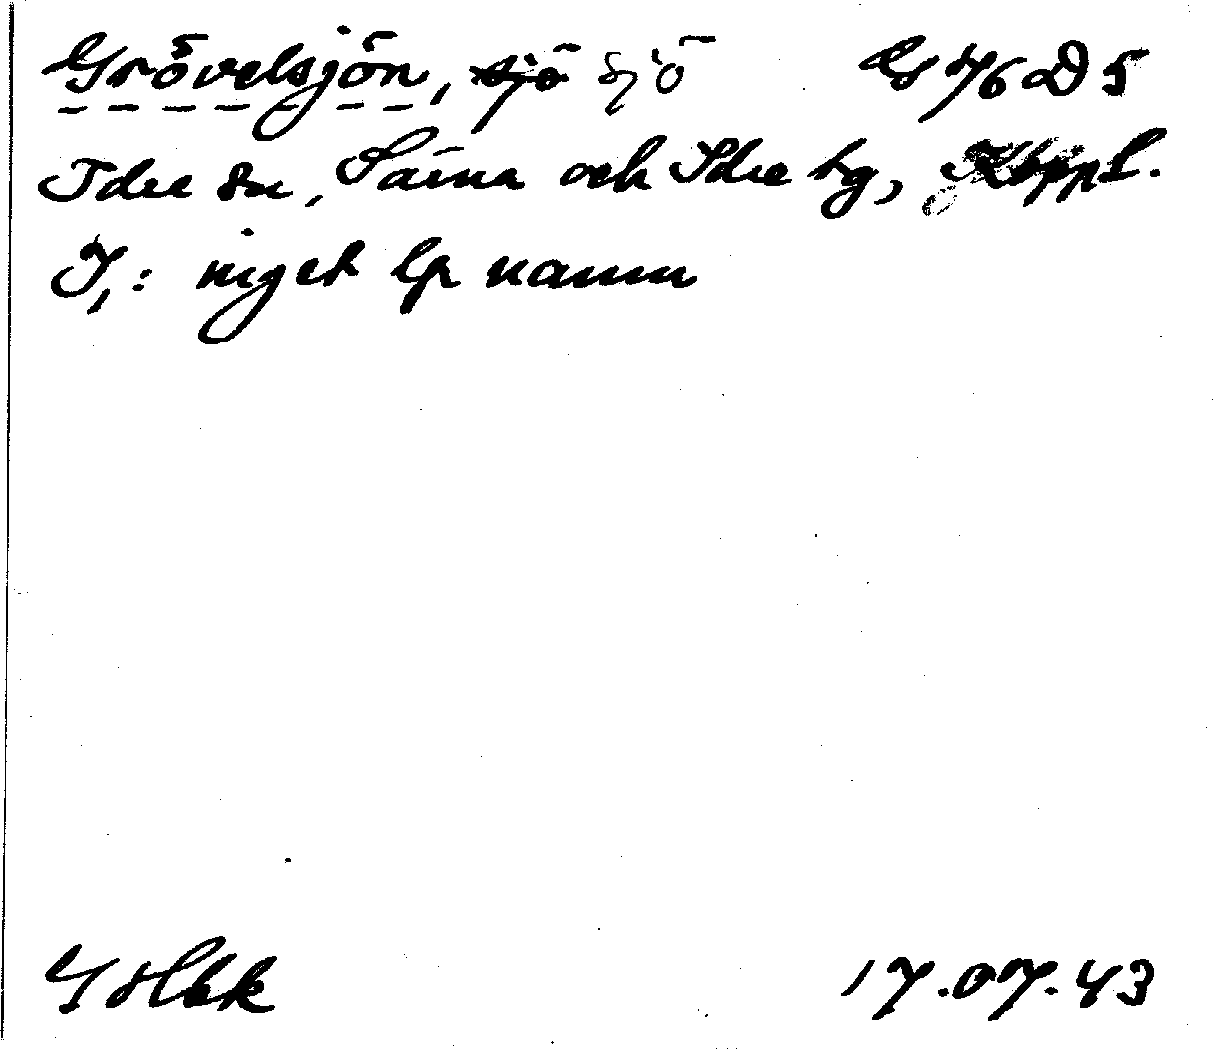 Grövelsjön, sjö sjö GS 4/6 D 5
Idre sn, Särna och Idre tg, Koppl.
J,: inget lp namn
17.07.43